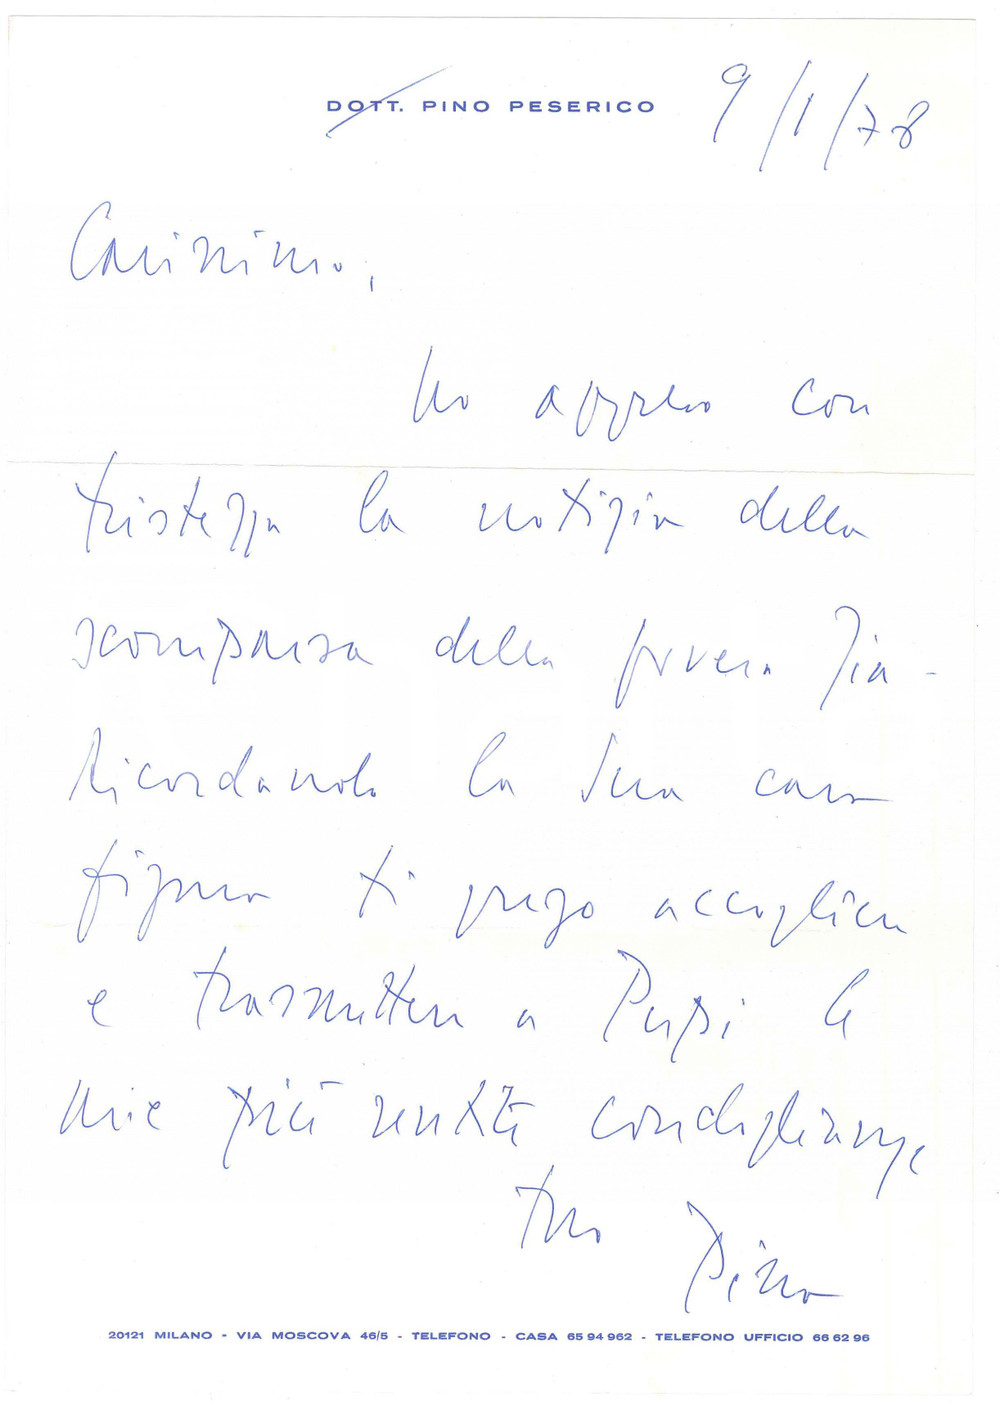 DOTT. PINO PESERICO
9/1/78
Carissimo,
ho appreso con
tristezza la notizia della
scomparsa della povera Zia -
Ricordando la Sua cara
figura ti prego accogliere
e trasmettere a Pupi le
mie più sentite condoglianze
tuo Pino
20121 MILANO - VIA MOSCOVA 46/5 - TELEFONO - CASA 65 94 962 - TELEFONO UFFICIO 66 62 96